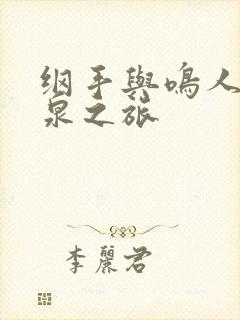 纲手與鳴人
泉之旅
李麗君